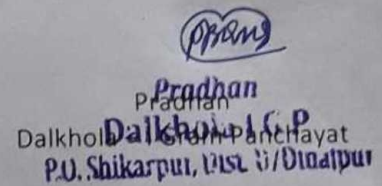 Pradhan
Pradhan
Dalkhola-I G.P
Dalkhola Gram Panchayat
P.O. Shikarpur, Dist. U/Dinajpur